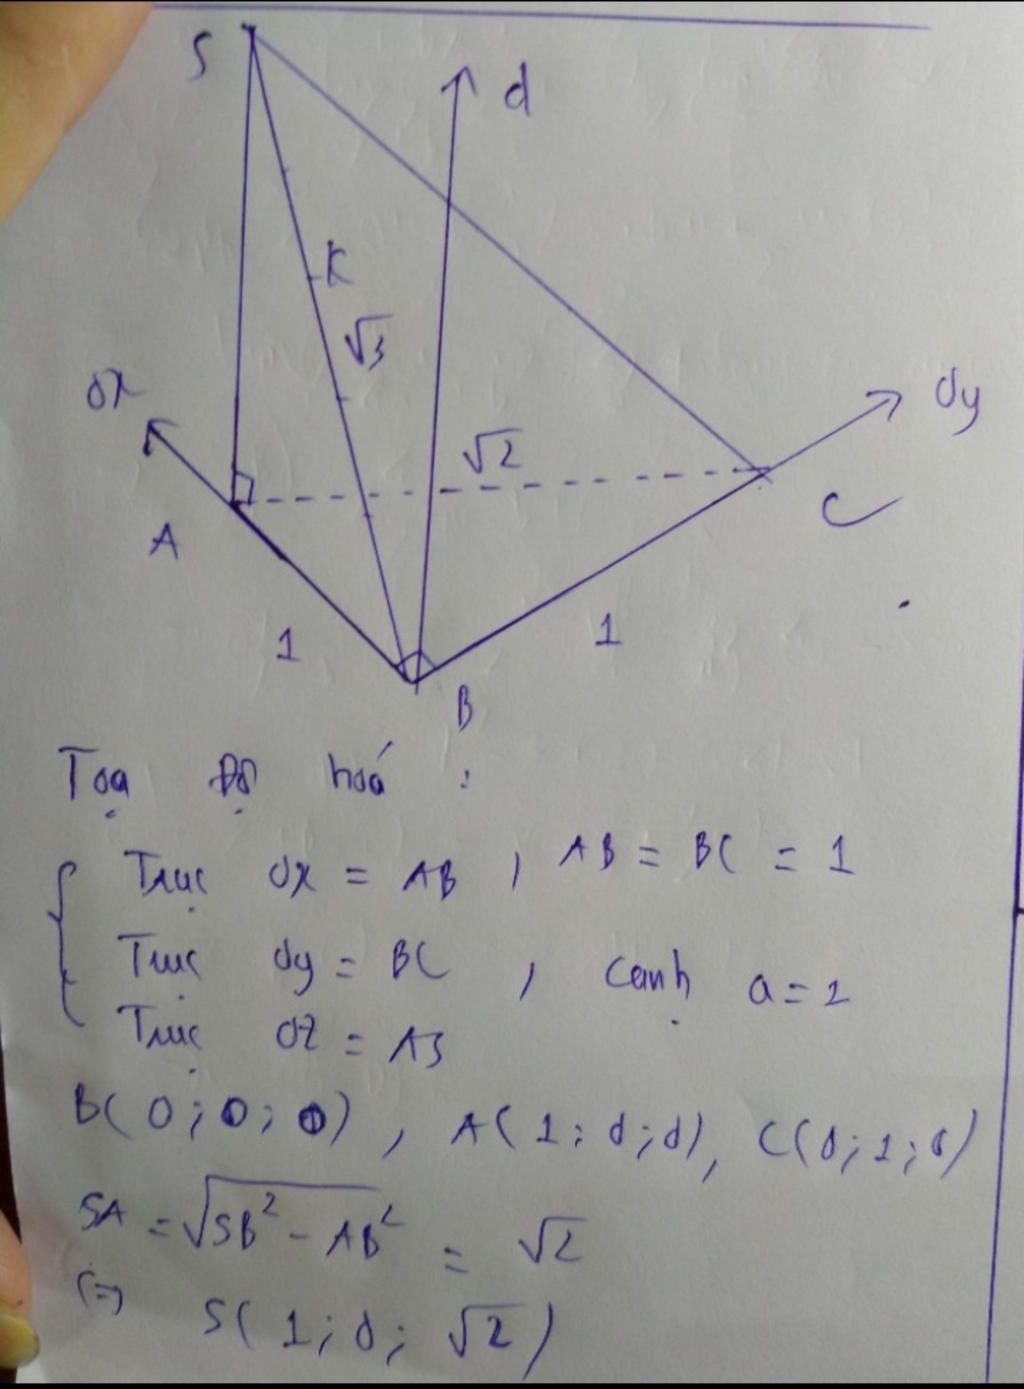 S
d
K
√3
ox
oy
√2
A
C
1
1
B
Toạ Độ hoá :
Trục ox = AB , AB = BC = 1
Trục oy = BC , cạnh a = 1
Trục oz = AS
B( 0 ; 0 ; 0 ) , A( 1 ; 0 ; 0 ) , C( 0 ; 1 ; 0 )
SA = √SB² - AB² = √2
(=)
S( 1 ; 0 ; √2 )